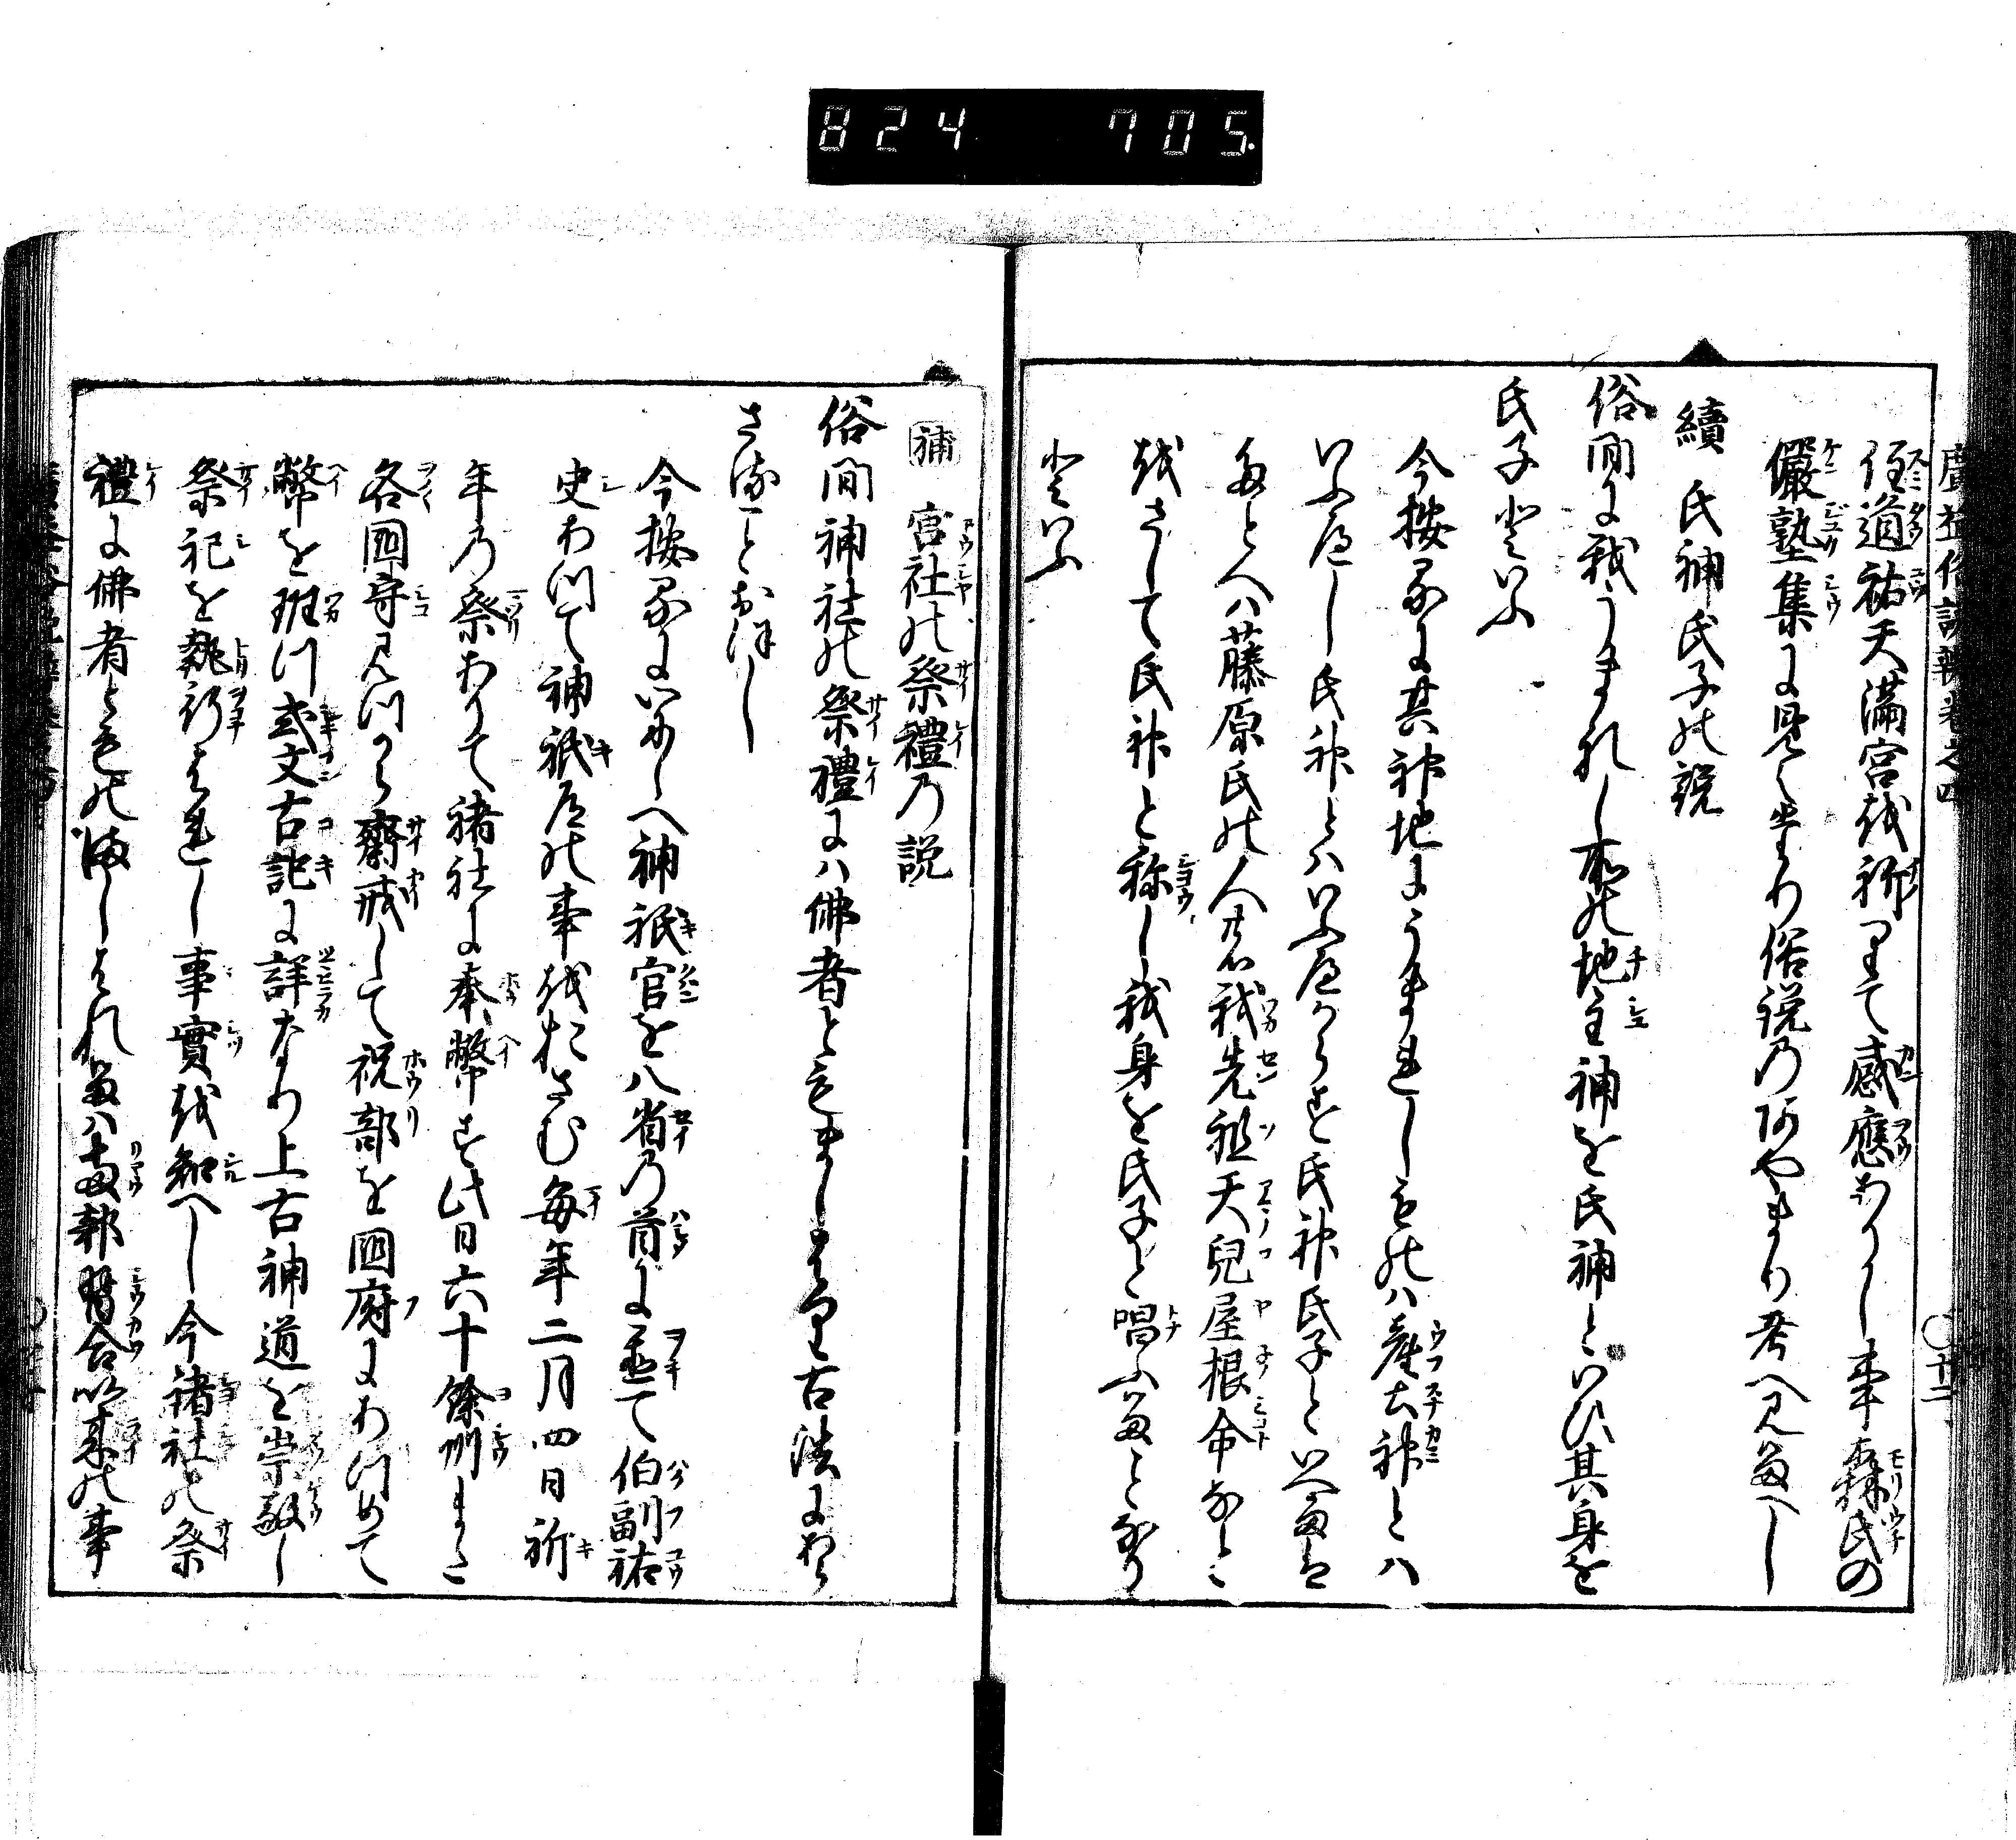 824 705.
侄道祐天滿宮越祈りて感應ありし事森氏の
儼塾集に見て坐り俗説乃阿やまり考へ見るへし
續 氏神氏子の説
俗間に我うまれし所の地主神を氏神といひ其身を
氏子といふ
今按るに其神地にうまれしものハ産土神とハ
いふへし氏神とハいふへからす氏神氏子といへるは
たとへハ藤原氏の人其我先祖天兒屋根命なと
越さして氏神と称し我身を氏子と唱ふることなり
といふ
補 宮社の祭禮乃説
俗間神社の祭禮にハ佛者ともましはり古法にわら
さることおほし
今按るにいにしへ神祇官を八省乃首に置て伯副祐
史わつて神祇道の事越おさむ毎年二月四日祈
年乃祭ありて諸社に奉幣す此日六十餘州より
各国守みつから齋戒して祝部を国府にあつめて
幣を班つ式文古記に詳なり上古神道を崇敬し
祭祀を執行はれし事實越知へし今諸社の祭
禮に佛者ともの海しはれるハ両部習合以来の事